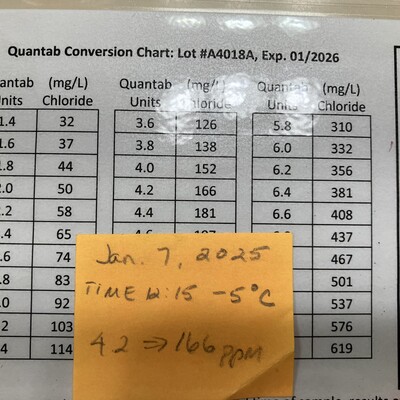 Quantab Conversion Chart: Lot #A4018A, Exp. 01/2026
Quantab (mg/L) Quantab (mg/L) Quantab (mg/L)
Units Chloride Units Chloride Units Chloride
1.4 32 3.6 126 5.8 310
1.6 37 3.8 138 6.0 332
1.8 44 4.0 152 6.2 356
2.0 50 4.2 166 6.4 381
2.2 58 4.4 181 6.6 408
.4 65 4.6 197 437
.6 74 467
.8 83 501
.0 92 537
.2 103 576
.4 114 619
Jan. 7, 2025
TIME 12:15 -5°C
4.2 ⇒ 166 ppm